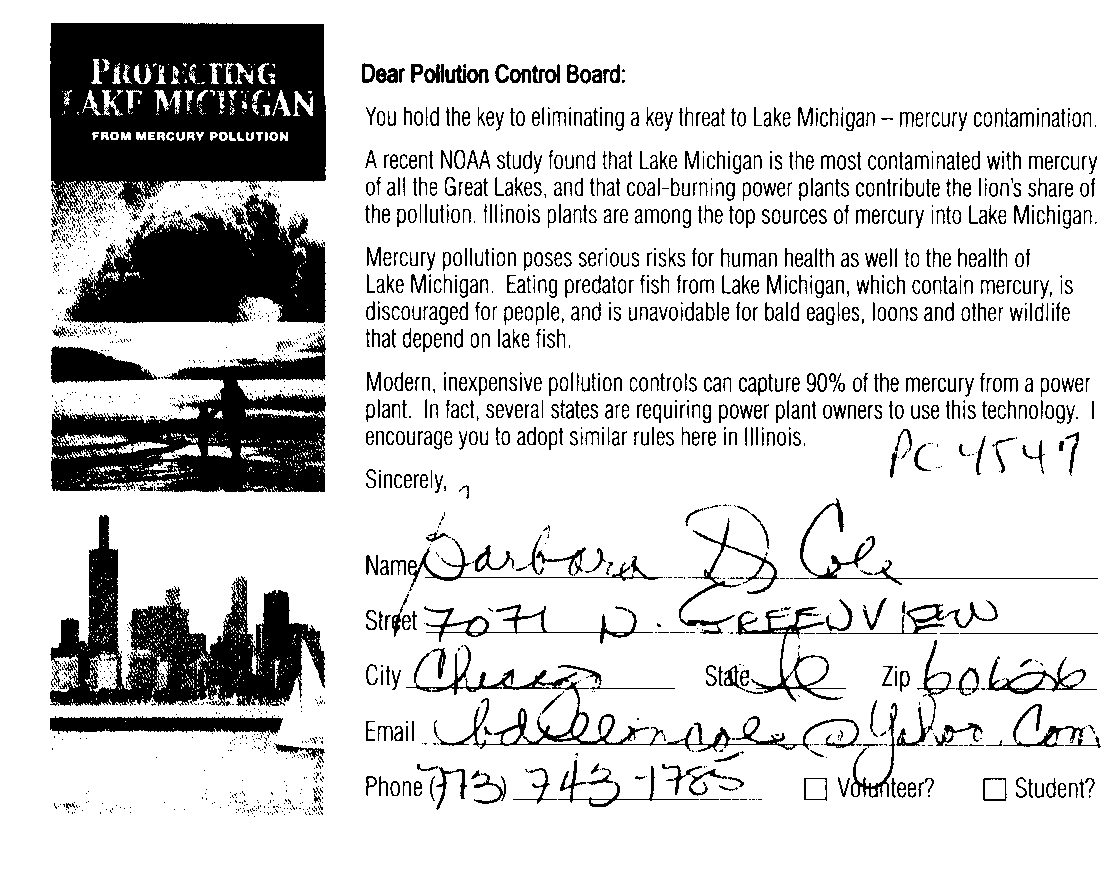 PROTECTING
LAKE MICHIGAN
FROM MERCURY POLLUTION
Dear Pollution Control Board:
You hold the key to eliminating a key threat to Lake Michigan – mercury contamination.
A recent NOAA study found that Lake Michigan is the most contaminated with mercury
of all the Great Lakes, and that coal-burning power plants contribute the lion's share of
the pollution. Illinois plants are among the top sources of mercury into Lake Michigan.
Mercury pollution poses serious risks for human health as well to the health of
Lake Michigan. Eating predator fish from Lake Michigan, which contain mercury, is
discouraged for people, and is unavoidable for bald eagles, loons and other wildlife
that depend on lake fish.
Modern, inexpensive pollution controls can capture 90% of the mercury from a power
plant. In fact, several states are requiring power plant owners to use this technology. I
encourage you to adopt similar rules here in Illinois.
PC 4547
Sincerely,
Name Barbara D Cole
Street 7071 N. GREENVIEW
City Chicago State Il Zip 60626
Email @yahoo.com
Phone (773) 743-1785 Volunteer? Student?